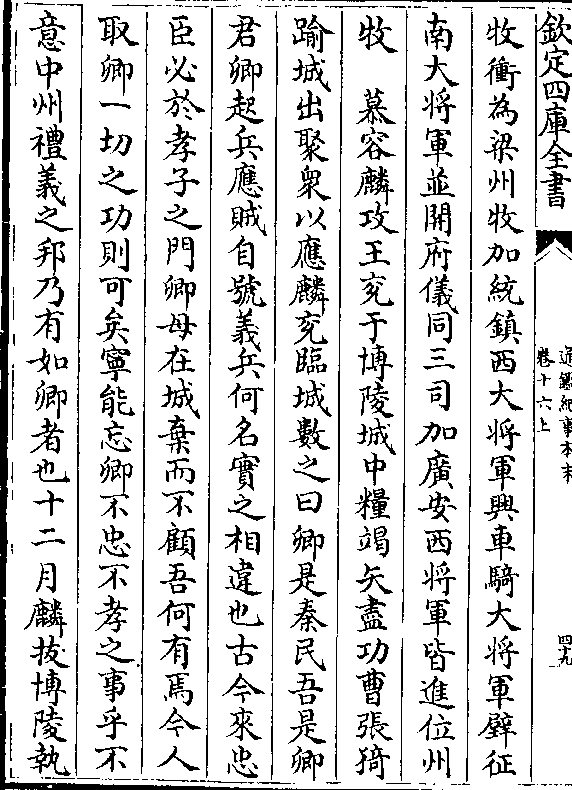 欽定四庫全書
通鑑紀事本末
卷十六上
四九
牧衝為梁州牧加統鎮西大將軍興車騎大將軍璧征
南大將軍並開府儀同三司加廣安西將軍皆進位州
牧　慕容麟攻王兖于博陵城中糧竭矢盡功曹張猗
踰城出聚衆以應麟兖臨城數之曰卿是秦民吾是卿
君卿起兵應賊自號義兵何名實之相違也古今來忠
臣必於孝子之門卿母在城棄而不顧吾何有焉今人
取卿一切之功則可矣寧能忘卿不忠不孝之事乎不
意中州禮義之邦乃有如卿者也十二月麟拔博陵執